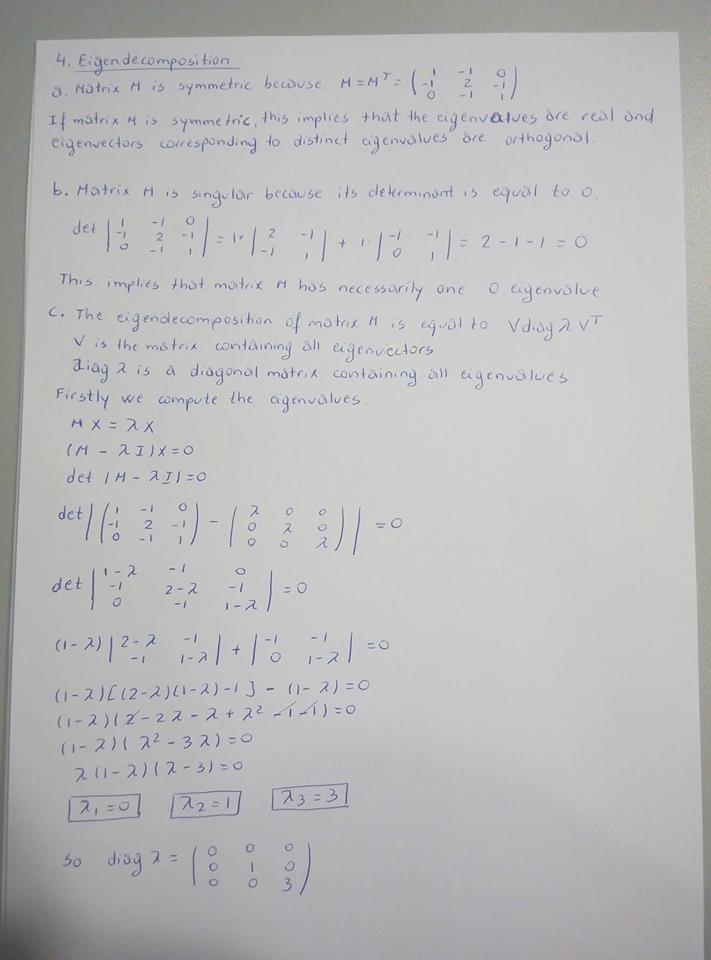 4. Eigendecomposition
a. Matrix M is symmetric because M = Mᵀ = ( 1 -1 0 ; -1 2 -1 ; 0 -1 1 )
If matrix M is symmetric, this implies that the eigenvalues are real and
eigenvectors corresponding to distinct eigenvalues are orthogonal.
b. Matrix M is singular because its determinant is equal to 0.
det | 1 -1 0 ; -1 2 -1 ; 0 -1 1 | = 1· | 2 -1 ; -1 1 | + 1· | -1 -1 ; 0 1 | = 2 - 1 - 1 = 0
This implies that matrix M has necessarily one 0 eigenvalue.
C. The eigendecomposition of matrix M is equal to V diag λ Vᵀ.
V is the matrix containing all eigenvectors
diag λ is a diagonal matrix containing all eigenvalues.
Firstly we compute the eigenvalues.
M X = λ X
(M - λ I) X = 0
det |M - λI| = 0
det | ( 1 -1 0 ; -1 2 -1 ; 0 -1 1 ) - ( λ 0 0 ; 0 λ 0 ; 0 0 λ ) | = 0
det | 1-λ -1 0 ; -1 2-λ -1 ; 0 -1 1-λ | = 0
(1-λ) | 2-λ -1 ; -1 1-λ | + | -1 -1 ; 0 1-λ | = 0
(1-λ)[(2-λ)(1-λ)-1] - (1-λ) = 0
(1-λ)(2 - 2λ - λ + λ² - 1 - 1) = 0
(1-λ)(λ² - 3λ) = 0
λ(1-λ)(λ-3) = 0
λ₁ = 0 λ₂ = 1 λ₃ = 3
So diag λ = ( 0 0 0 ; 0 1 0 ; 0 0 3 )